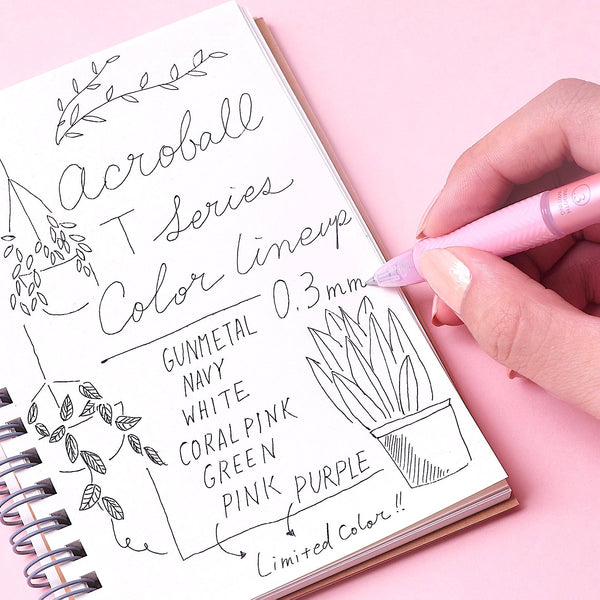 Acroball
T Series
Color lineup
0.3mm
GUNMETAL
NAVY
WHITE
CORAL PINK
GREEN
PINK PURPLE
Limited Color!!